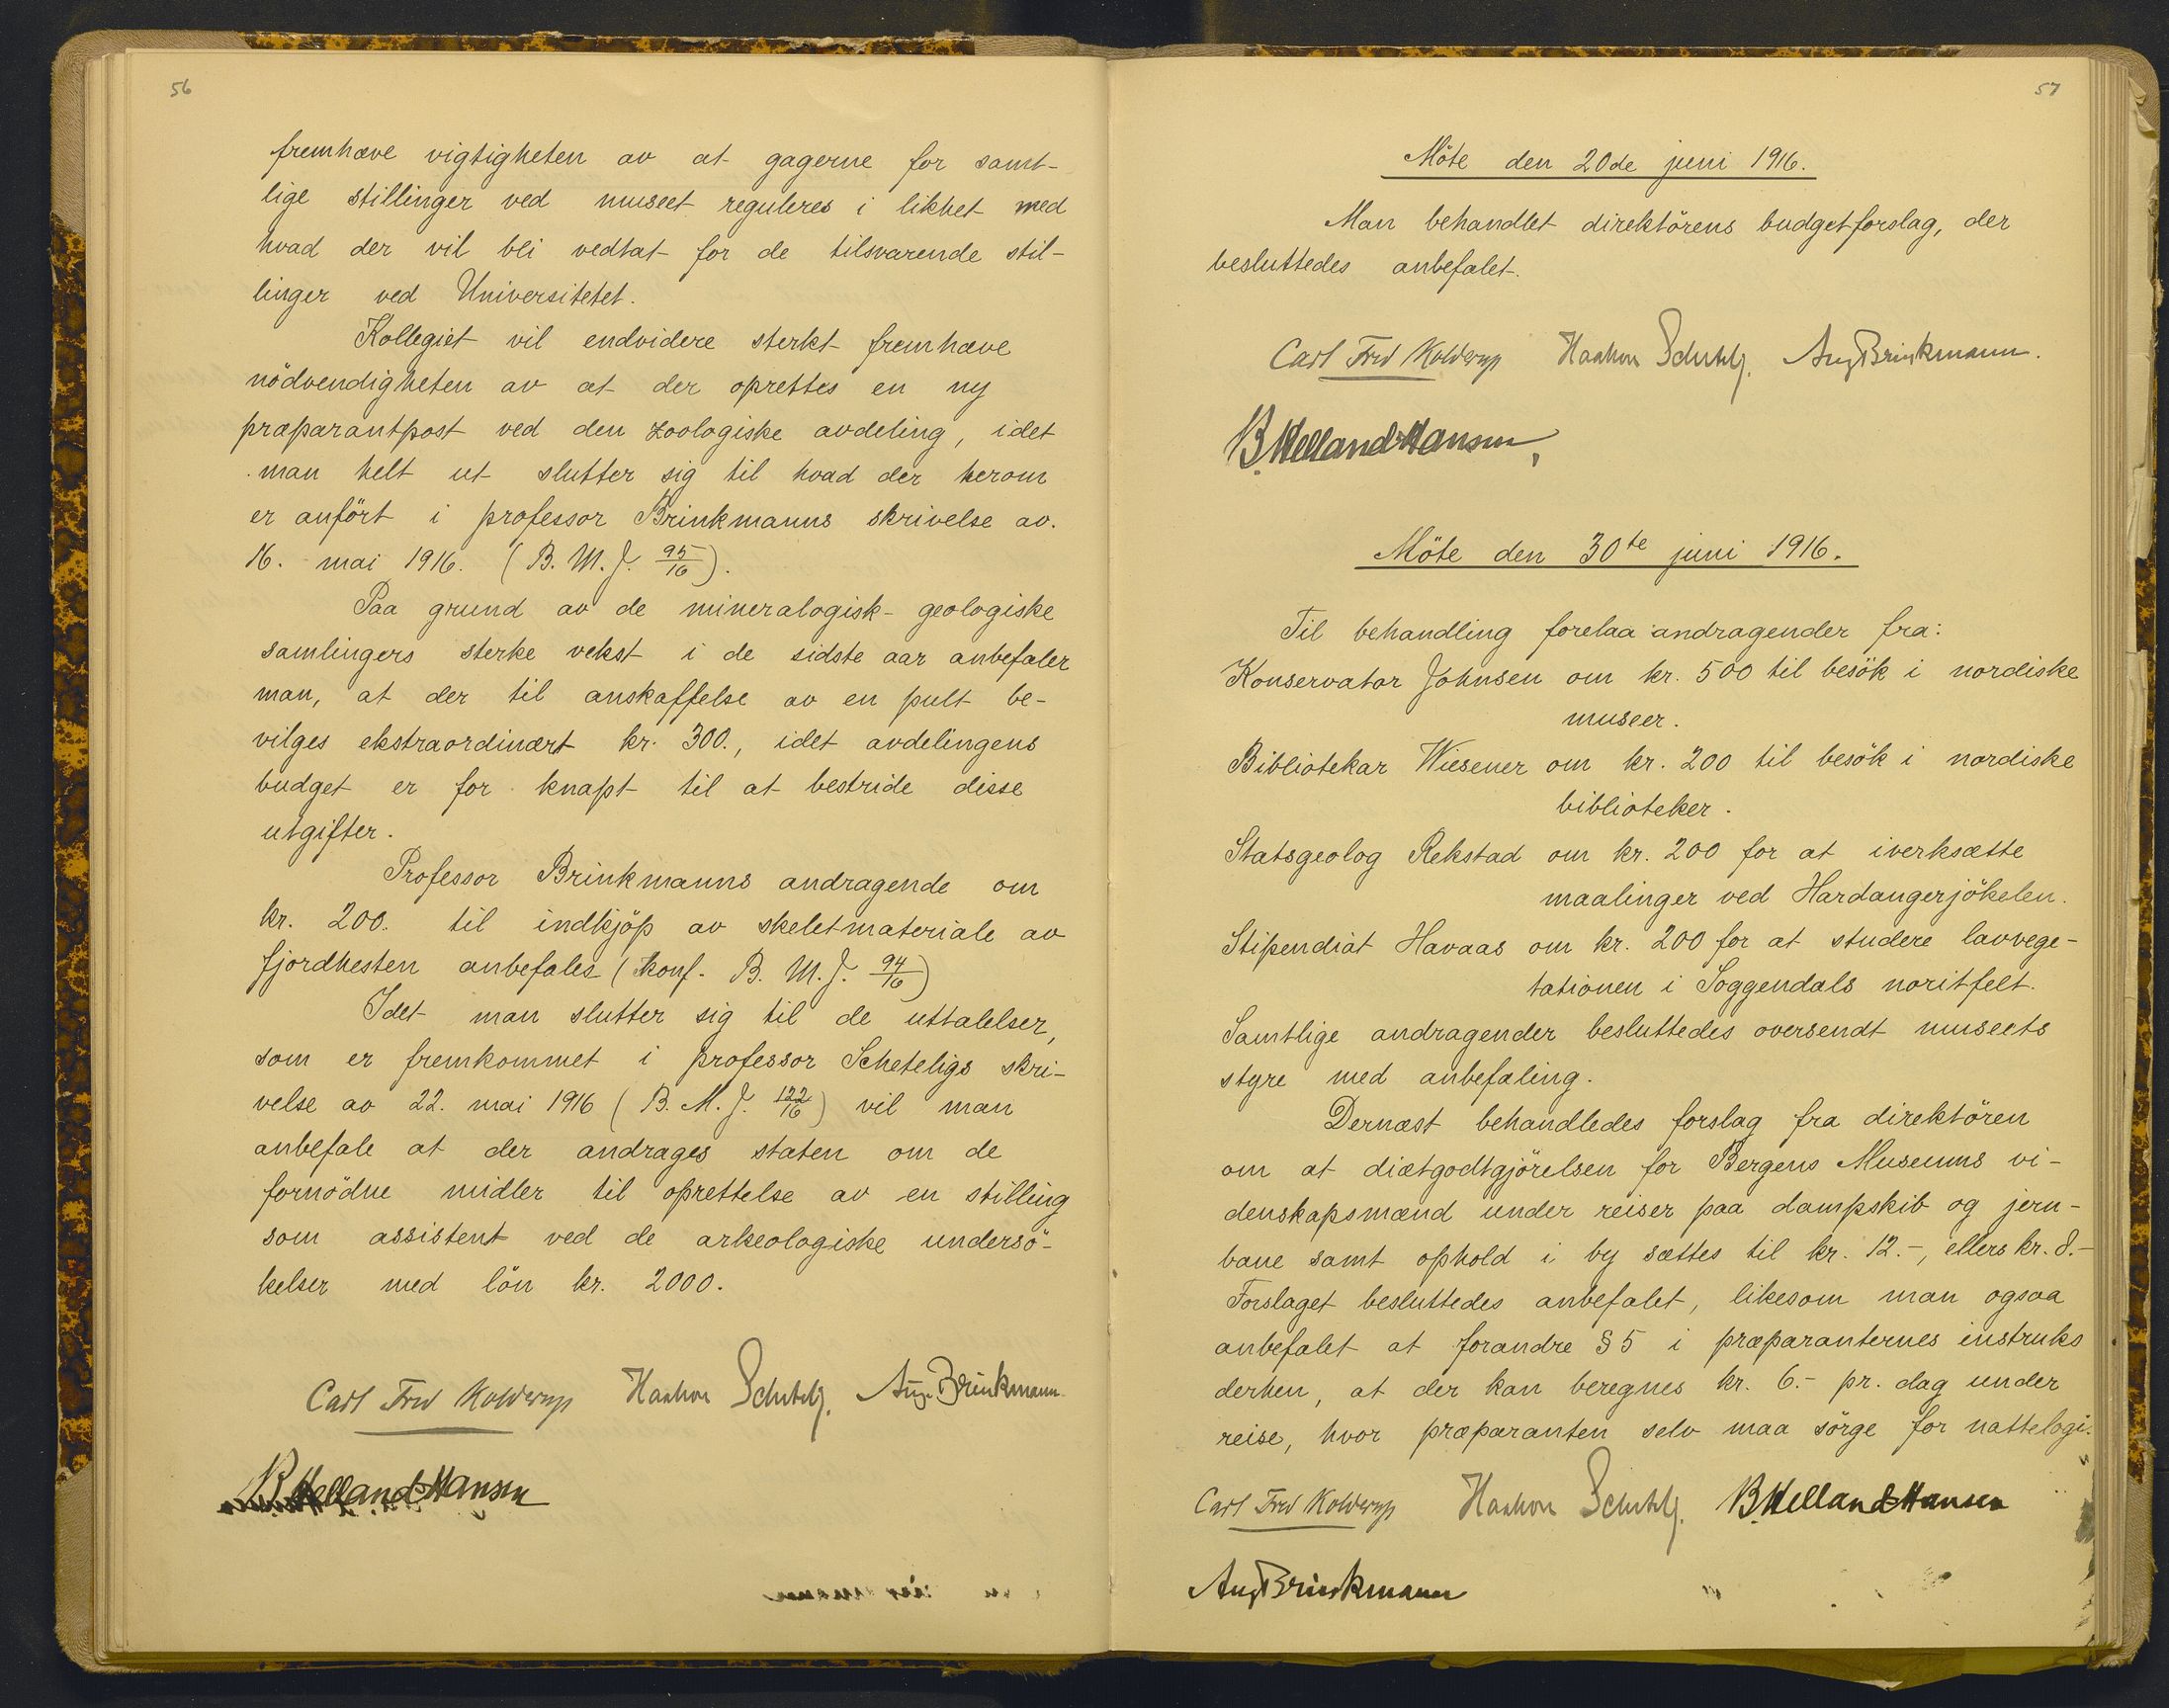 56
fremhæve vigtigheten av at gagerne for samt-
lige stillinger ved museet reguleres i likhet med
hvad der vil bli vedtat for de tilsvarende stil-
linger ved Universitetet.
Kollegiet vil endvidere sterkt fremhæve
nödvendigheten av at der oprettes en ny
præparantpost ved den zoologiske avdeling, idet
man helt ut slutter sig til hvad der herom
er anfört i professor Brinkmanns skrivelse av.
16. mai 1916. (B. M. J. 95/16).
Paa grund av de mineralogisk-geologiske
samlingers sterke vekst i de sidste aar anbefaler
man, at der til anskaffelse av en pult be-
vilges ekstraordinært kr. 300., idet avdelingens
budget er for knapt til at bestride disse
utgifter.
Professor Brinkmanns andragende om
kr. 200. til indkjöp av skeletmateriale av
fjordhesten anbefales (konf. B. M. J. 94/16)
Idet man slutter sig til de uttalelser,
som er fremkommet i professor Scheteligs skri-
velse av 22. mai 1916 (B. M. J. 122/16) vil man
anbefale at der andrages staten om de
fornödne midler til oprettelse av en stilling
som assistent ved de arkeologiske undersö-
kelser med lön kr. 2000.
Carl Fred Kolderup Haakon Schetelig. Aug. Brinkmann
B. Helland-Hansen
57
Möte den 20de juni 1916.
Man behandlet direktörens budgetforslag, der
besluttedes anbefalet.
Carl Fred Kolderup Haakon Schetelig. Aug Brinkmann.
B. Helland-Hansen,
Möte den 30te juni 1916.
Til behandling forelaa andragender fra:
Konservator Johnsen om kr. 500 til besök i nordiske
museer.
Bibliotekar Wiesener om kr. 200 til besök i nordiske
biblioteker.
Statsgeolog Rekstad om kr. 200 for at iverksætte
maalinger ved Hardangerjökelen.
Stipendiat Havaas om kr. 200 for at studere lavvege-
tationen i Soggendals noritfelt.
Samtlige andragender besluttedes oversendt museets
styre med anbefaling.
Dernæst behandledes forslag fra direktören
om at diætgodtgjörelsen for Bergens Museums vi-
denskapsmænd under reiser paa dampskib og jern-
bane samt ophold i by sættes til kr. 12.-, ellers kr. 8.-
Forslaget besluttedes anbefalet, likesom man ogsaa
anbefalet at forandre § 5 i præparanternes instruks
derhen, at der kan beregnes kr. 6.- pr. dag under
reise, hvor præparanten selv maa sörge for nattelogi.
Carl Fred Kolderup Haakon Schetelig. B. Helland-Hansen
Aug Brinkmann